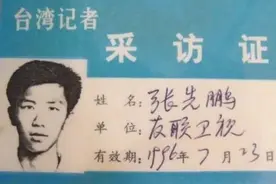 台湾记者
采访证
姓名：张先鹏
单位：友联卫视
有效期：1996年7月23日